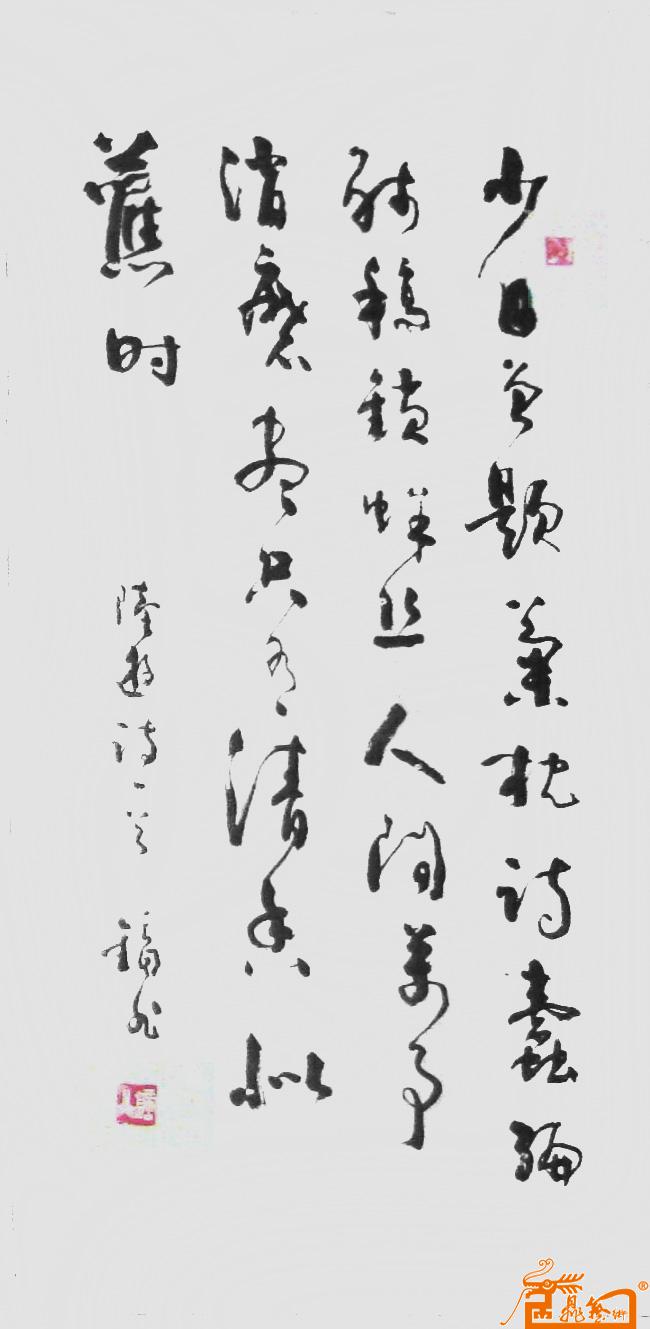 少日曾题菊枕诗蠹编
残稿锁蛛丝人间萬事
消磨尽只有清香似
舊时
陸游诗一首